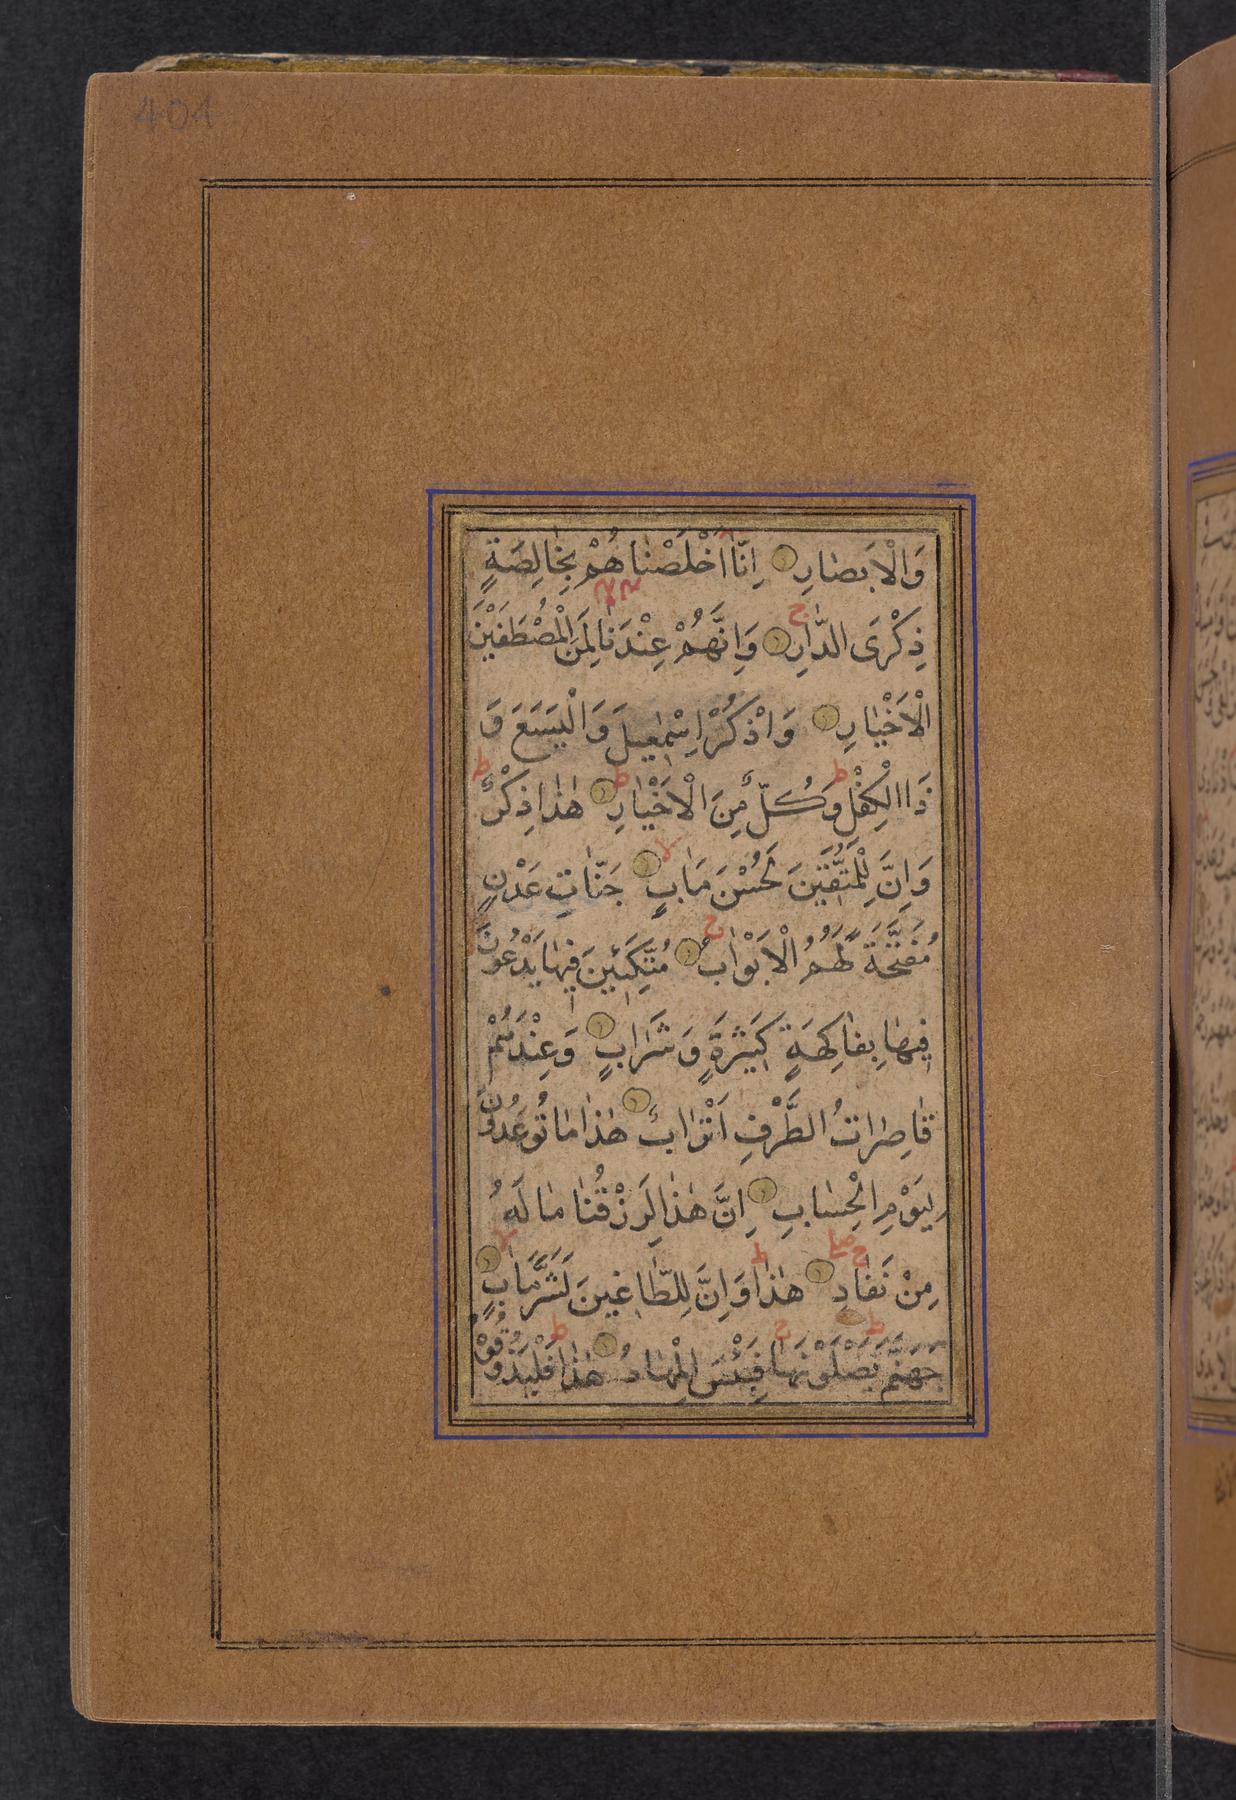 404
وَالْاَبصٰارِ اِنّٰا اَخْلَصْنٰا هُمْ بِخٰالِصَةٍ
ذِكْرَى الدّٰارِ وَاِنَّهُمْ عِنْدَنٰا لَمِنَ الْمُصْطَفَيْنَ
الْاَخْيٰارِ وَاذْكُرْ اِسْمٰعيلَ وَالْيَسَعَ وَ
ذَا الْكِفْلِ وَكُلٌّ مِنَ الْاَخْيٰارِ هٰذٰا ذِكْرٌ
وَاِنَّ لِلْمُتَّقينَ لَحُسْنَ مَاٰبٍ جَنّٰاتِ عَدْنٍ
مُفَتَّحَةً لَهُمُ الْاَبْوٰابُ مُتَّكِئينَ فيهٰا يَدْعُونَ
فيهٰا بِفٰاكِهَةٍ كَثيرَةٍ وَشَرٰابٍ وَعِنْدَهُمْ
قٰاصِرٰاتُ الطَّرْفِ اَتْرٰابٌ هٰذٰا مٰا تُوعَدُونَ
لِيَوْمِ الْحِسٰابِ اِنَّ هٰذٰا لَرِزْقُنٰا مٰا لَهُ
مِنْ نَفٰادٍ هٰذٰا وَاِنَّ لِلطّٰاغينَ لَشَرَّ مَاٰبٍ
جَهَنَّمَ يَصْلَوْنَهٰا فَبِئْسَ الْمِهٰادُ هٰذٰا فَلْيَذُوقُوْ